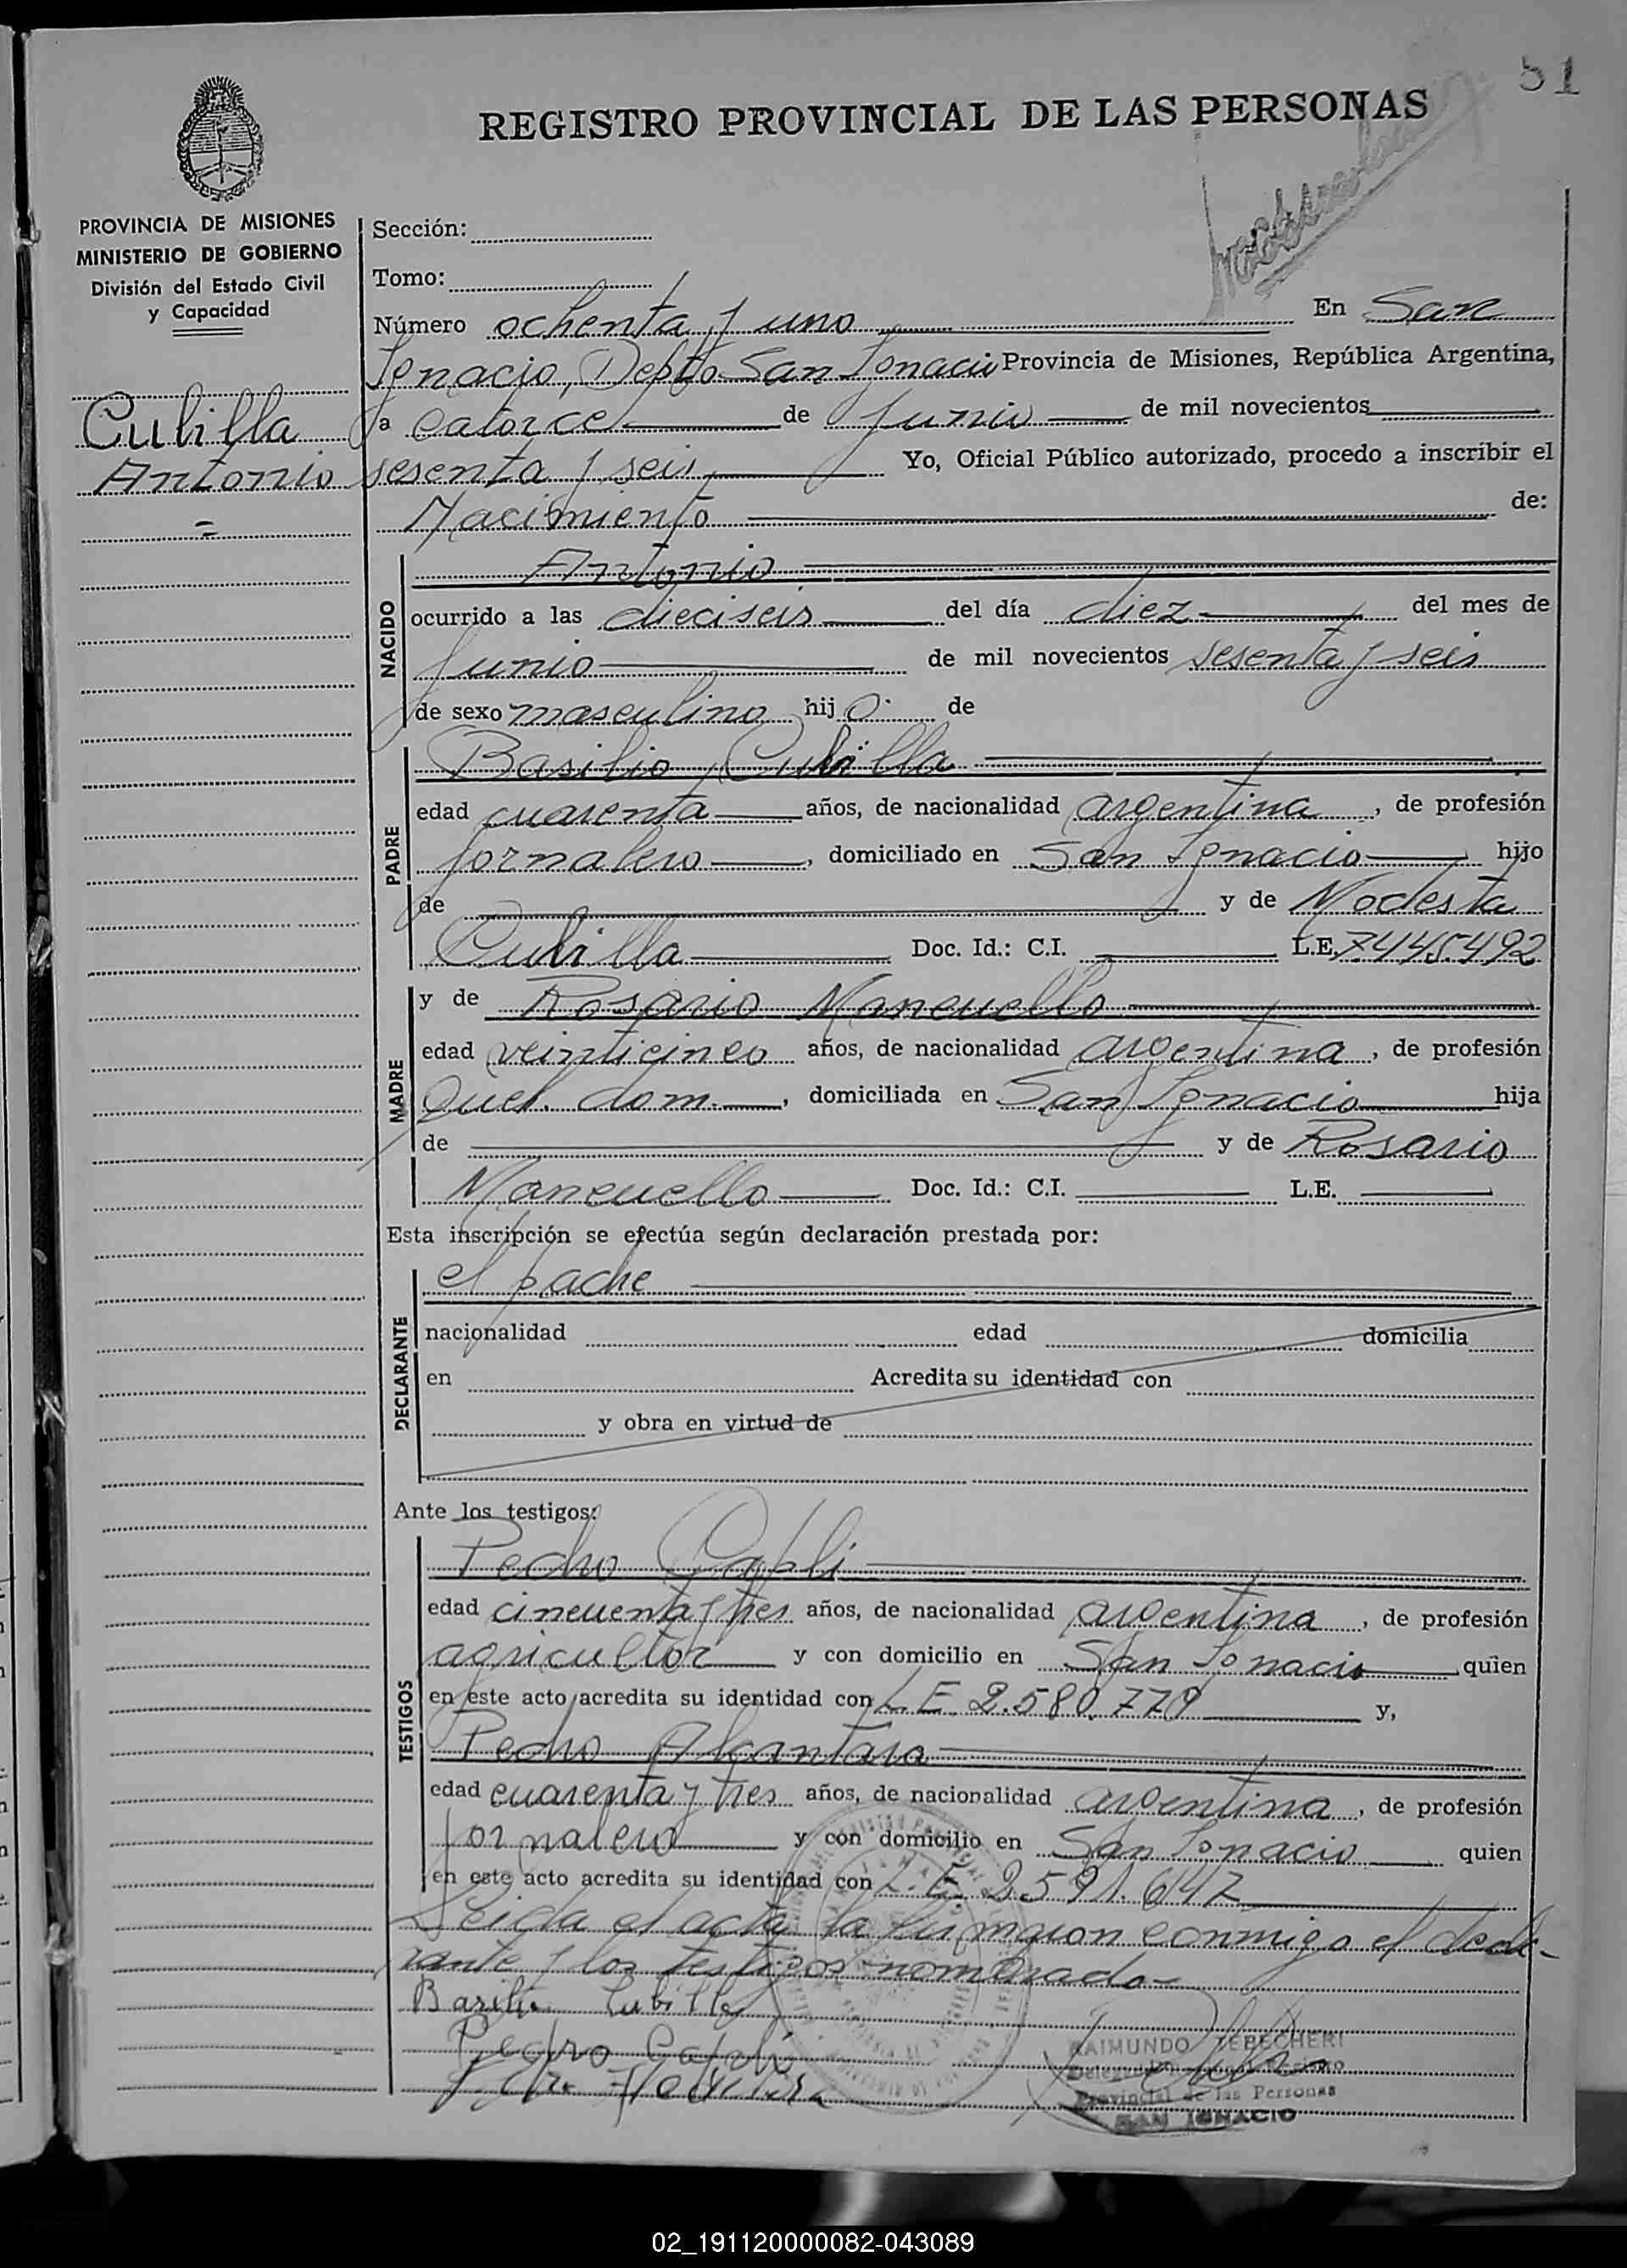 51
REGISTRO PROVINCIAL DE LAS PERSONAS
PROVINCIA DE MISIONES
MINISTERIO DE GOBIERNO
División del Estado Civil
y Capacidad
Cubilla
Antonio
=
Sección:
Tomo:
Número ochenta y uno En San
Ignacio, Depto San Ignacio Provincia de Misiones, República Argentina,
a catorce de Junio de mil novecientos
sesenta y seis Yo, Oficial Público autorizado, procedo a inscribir el
Nacimiento de:
NACIDO
Antonio
ocurrido a las dieciseis del día diez del mes de
Junio de mil novecientos sesenta y seis
de sexo masculino hijo de
PADRE
Basilio Cubilla
edad cuarenta años, de nacionalidad argentina, de profesión
jornalero, domiciliado en San Ignacio hijo
de y de Modesta
Cubilla Doc. Id.: C.I. L.E. 7.445.492
MADRE
y de Rosario Mancuello
edad veinticinco años, de nacionalidad argentina, de profesión
Queh. dom., domiciliada en San Ignacio hija
de y de Rosario
Mancuello Doc. Id.: C.I. L.E.
Esta inscripción se efectúa según declaración prestada por:
DECLARANTE
el padre
nacionalidad edad domicilia
en Acredita su identidad con
y obra en virtud de
Ante los testigos:
TESTIGOS
Pedro
edad cincuenta y tres años, de nacionalidad argentina, de profesión
agricultor y con domicilio en San Ignacio quien
en este acto acredita su identidad con L.E. 2.580.779 y,
Pedro Alcantara
edad cuarenta y tres años, de nacionalidad argentina, de profesión
jornalero y con domicilio en San Ignacio quien
en este acto acredita su identidad con L.E. 2.591.647
Leida el acta la firman conmigo el decla-
rante y los testigos nombrados
Basilio Cubilla
Pedro
RAIMUNDO
Provincial de las Personas
SAN IGNACIO
02_191120000082-043089